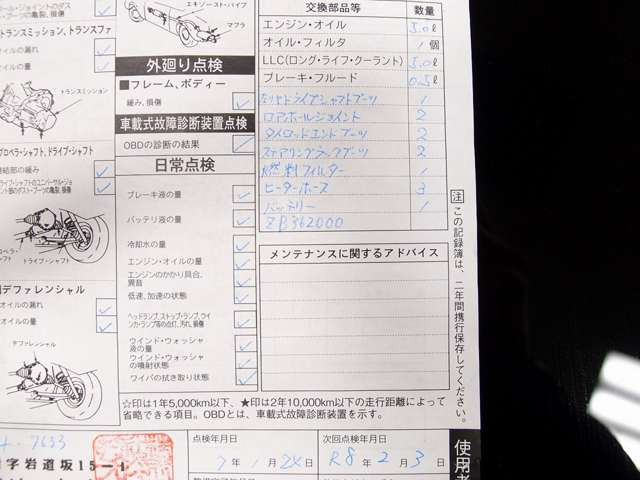 エキゾースト・パイプ
マフラ
外廻り点検
■フレーム、ボディー
緩み、損傷
車載式故障診断装置点検
OBDの診断の結果
日常点検
ブレーキ液の量
バッテリ液の量
冷却水の量
エンジン・オイルの量
エンジンのかかり具合、
異音
低速、加速の状態
ヘッドランプ、ストップ・ランプ、ウイ
ンカ・ランプ等の点灯、汚れ、損傷
ウインド・ウォッシャ
液の量
ウインド・ウォッシャ
の噴射状態
ワイパの拭き取り状態
交換部品等 数量
エンジン・オイル 5.0ℓ
オイル・フィルタ 1個
LLC(ロング・ライフ・クーラント) 5.0ℓ
ブレーキ・フルード 0.5ℓ
ドライブシャフトブーツ 1
ロアボールジョイント 2
タイロッドエンドブーツ 2
ステアリングラックブーツ 2
燃料フィルター 1
ヒーターホース 3
バッテリー 1
メンテナンスに関するアドバイス
注 この記録簿は、二年間携行保存してください。
トランスミッション、トランスファ
オイルの漏れ
オイルの量
トランスミッション
プロペラ・シャフト、ドライブ・シャフト
連結部の緩み
ドライブ・シャフトのユニバーサル・ジョ
イント部のダスト・ブーツの亀裂、損傷
ドライブ・シャフト
デファレンシャル
オイルの漏れ
オイルの量
デファレンシャル
☆印は1年5,000km以下、★印は2年10,000km以下の走行距離によって
省略できる項目。OBDとは、車載式故障診断装置を示す。
字岩道坂15-1
点検年月日 次回点検年月日
7 1 24 R8 2 3
使用者